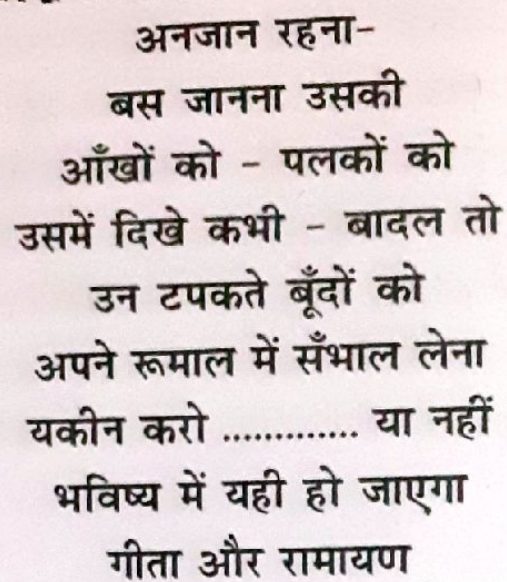 अनजान रहना-
बस जानना उसकी
आँखों को - पलकों को
उसमें दिखे कभी - बादल तो
उन टपकते बूँदों को
अपने रूमाल में सँभाल लेना
यकीन करो ............. या नहीं
भविष्य में यही हो जाएगा
गीता और रामायण